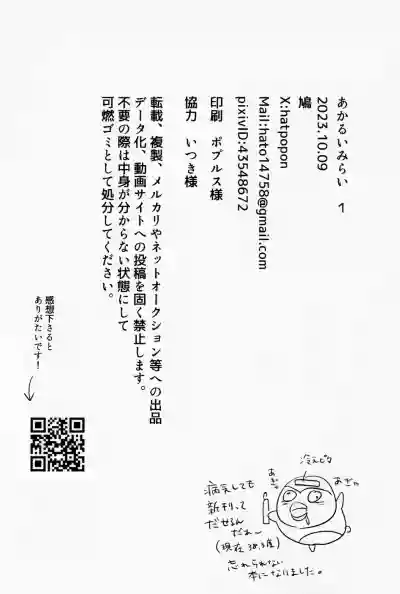 あかるいみらい　1
2023.10.09
鳩
X:hatpopon
Mail:hato14758@gmail.com
pixivID:43548672
印刷　ポプルス様
協力　いつき様
転載、複製、メルカリやネットオークション等への出品
データ化、動画サイトへの投稿を固く禁止します。
不要の際は中身が分からない状態にして
可燃ゴミとして処分してください。
感想下さると
ありがたいです！
冷えピタ
あぎゃ
あぎゃ
病気しても
新刊って
だせるん
だれ～
(現在38.3度)
忘れられない
本になりました。